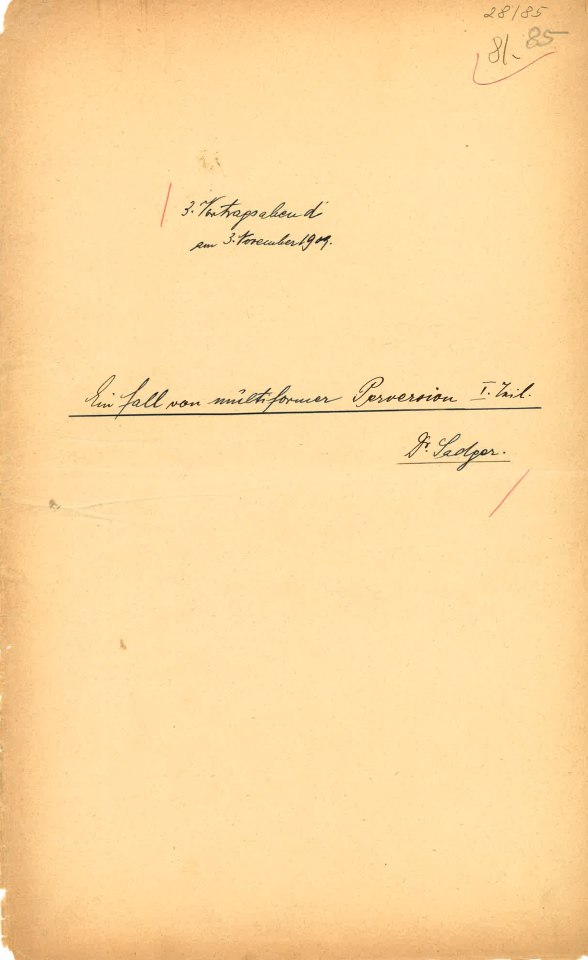 28/85
81. 85
3. Vortragsabend
am 3. November 1909.
Ein Fall von multiformer Perversion I. Teil.
Dr. Sadger.